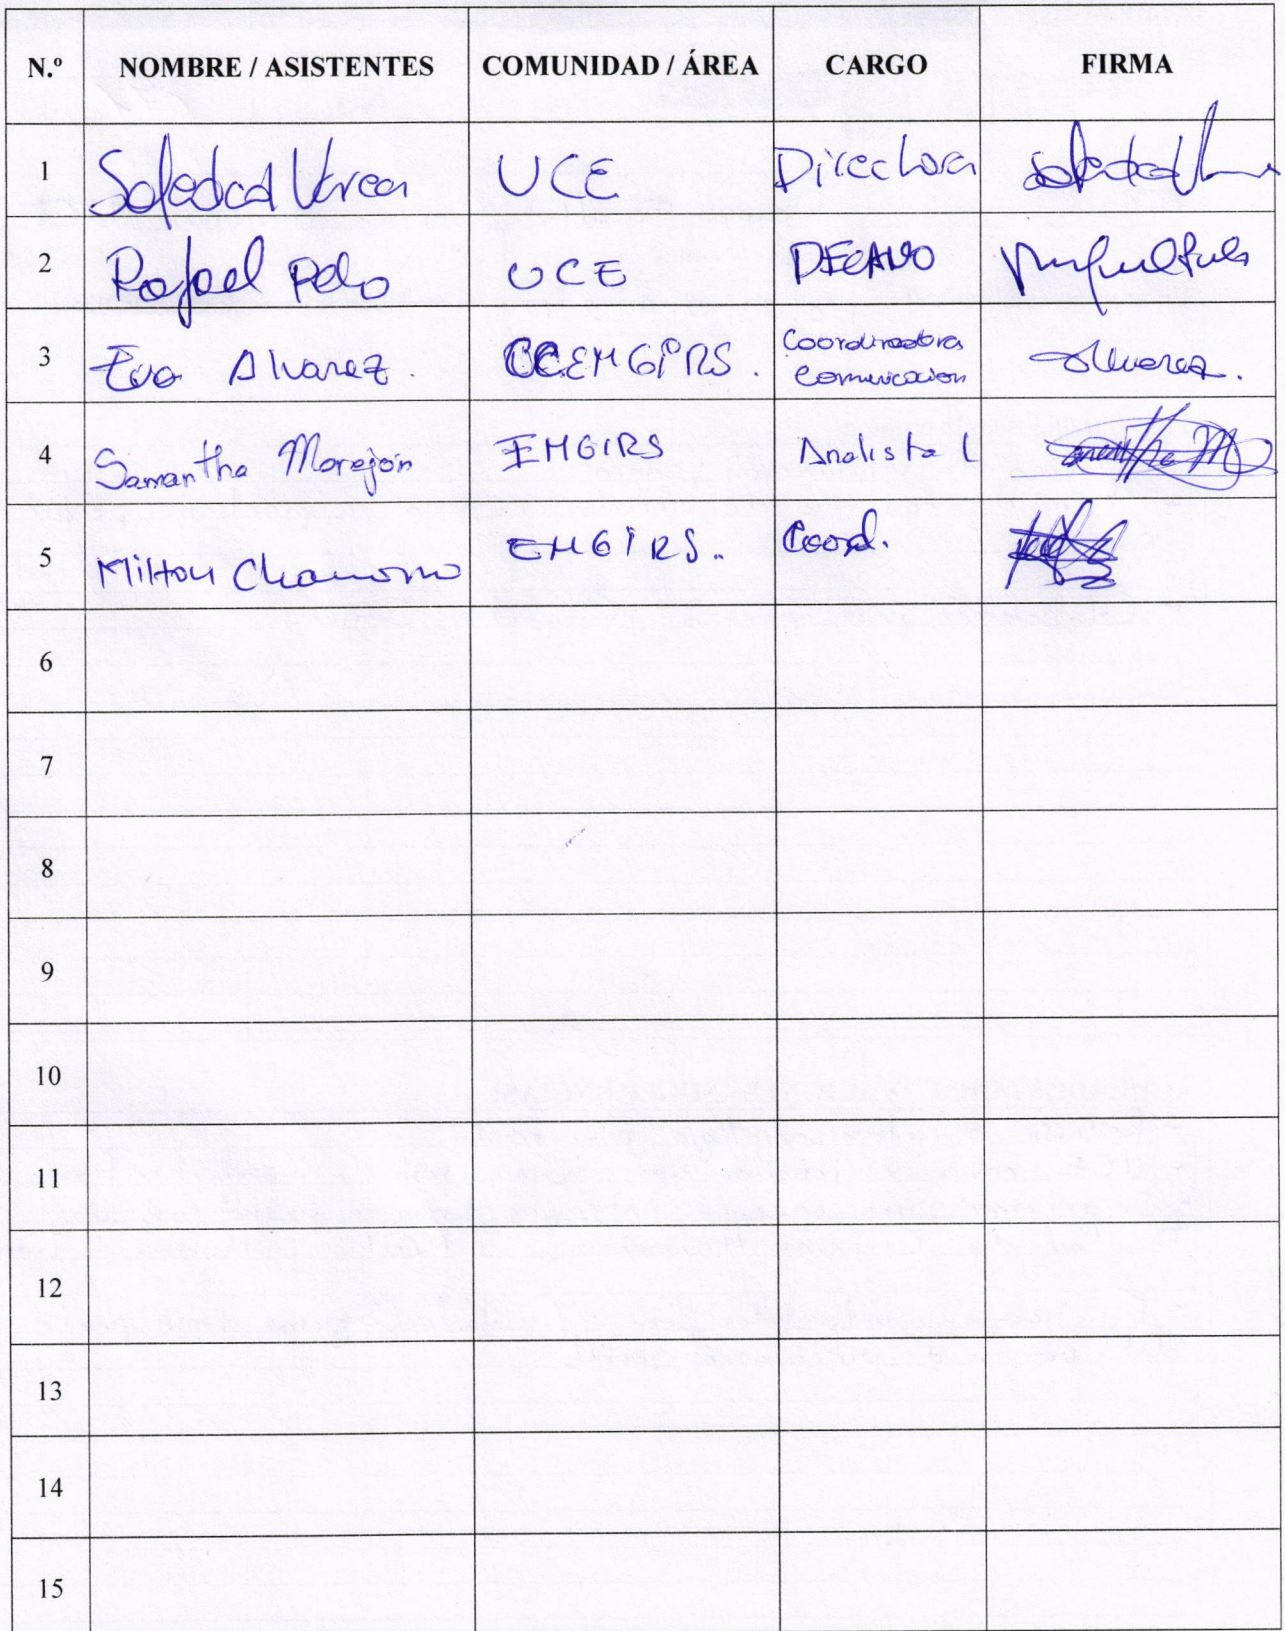 N.º NOMBRE / ASISTENTES COMUNIDAD / ÁREA CARGO FIRMA
1 Soledad Varea UCE Directora Soledad
2 Rafael Polo UCE DECANO
3 Eva Alvarez. EMGIRS. Coordinadora Comunicacion Alvarez.
4 Samantha Morejón EMGIRS Analista 1 Samantha M
5 Milton Chamorro EMGIRS.. Coord.
6
7
8
9
10
11
12
13
14
15